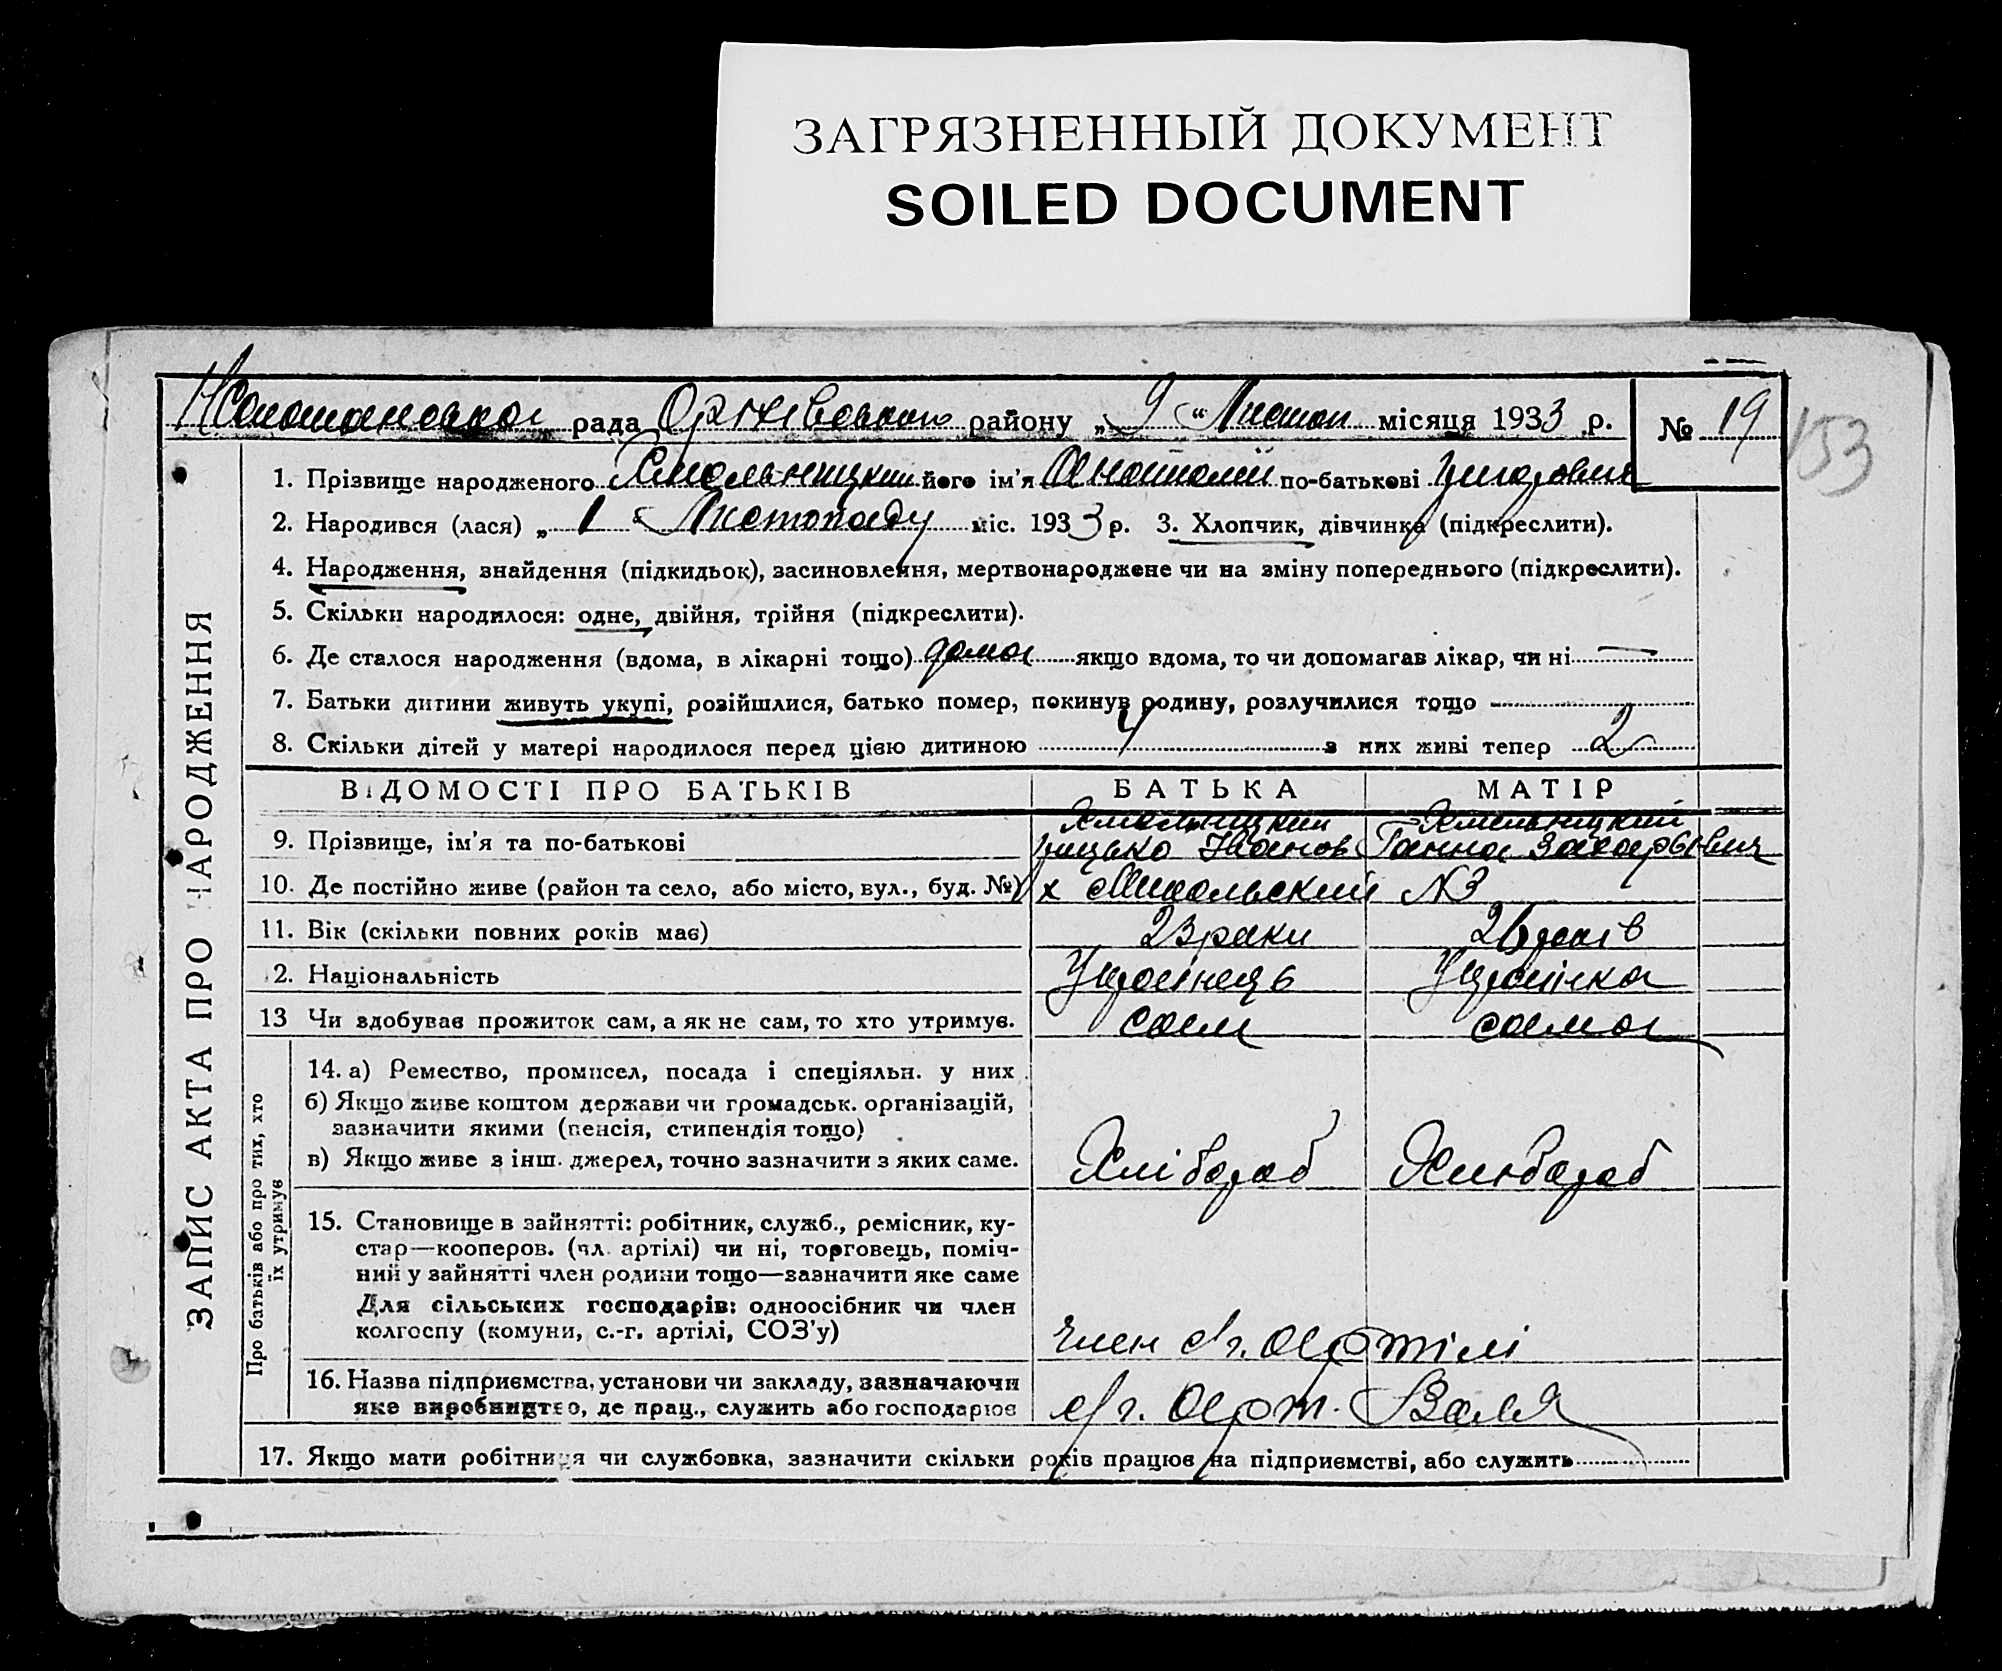 ЗАГРЯЗНЕННЫЙ ДОКУМЕНТ
SOILED DOCUMENT
рада Оржівського району „ 9 “ Листоп місяця 1933 р. № 19
153
ЗАПИС АКТА ПРО НАРОДЖЕННЯ
1. Прізвище народженого його ім'я Анатолий по-батькові
2. Народився (лася) „ 1 “ Листопаду міс. 1933 р. 3. Хлопчик, дівчинка (підкреслити).
4. Народження, знайдення (підкидьок), засиновлення, мертвонароджене чи на зміну попереднього (підкреслити).
5. Скільки народилося: одне, двійня, трійня (підкреслити).
6. Де сталося народження (вдома, в лікарні тощо) дома якщо вдома, то чи допомагав лікар, чи ні —
7. Батьки дитини живуть укупі, розійшлися, батько помер, покинув родину, розлучилися тощо
8. Скільки дітей у матері народилося перед цією дитиною 4 з них живі тепер 2
ВІДОМОСТІ ПРО БАТЬКІВ БАТЬКА МАТІР
9. Прізвище, ім'я та по-батькові Грицько Иванов Ганна
10. Де постійно живе (район та село, або місто, вул., буд. №) х №3
11. Вік (скільки повних років має) 23 роки 26 років
12. Національність Українець Українка
13 Чи здобуває прожиток сам, а як не сам, то хто утримує. сам сама
Про батьків або про тих, хто
їх утримує
14. а) Ремество, промисел, посада і спеціяльн. у них
б) Якщо живе коштом держави чи громадськ. організацій,
зазначити якими (пенсія, стипендія тощо)
в) Якщо живе з інш. джерел, точно зазначити з яких саме. Хлібороб Хлибороб
15. Становище в зайнятті: робітник, служб., ремісник, ку-
стар—кооперов. (чл. артілі) чи ні, торговець, поміч-
ний у зайнятті член родини тощо—зазначити яке саме
Для сільських господарів: одноосібник чи член
колгоспу (комуни, с.-г. артілі, СОЗ'у) член с/г. артілі
16. Назва підприємства, установи чи закладу, зазначаючи
яке виробництво, де прац., служить або господарює с/г. арт.
17. Якщо мати робітниця чи службовка, зазначити скільки років працює на підприємстві, або служить